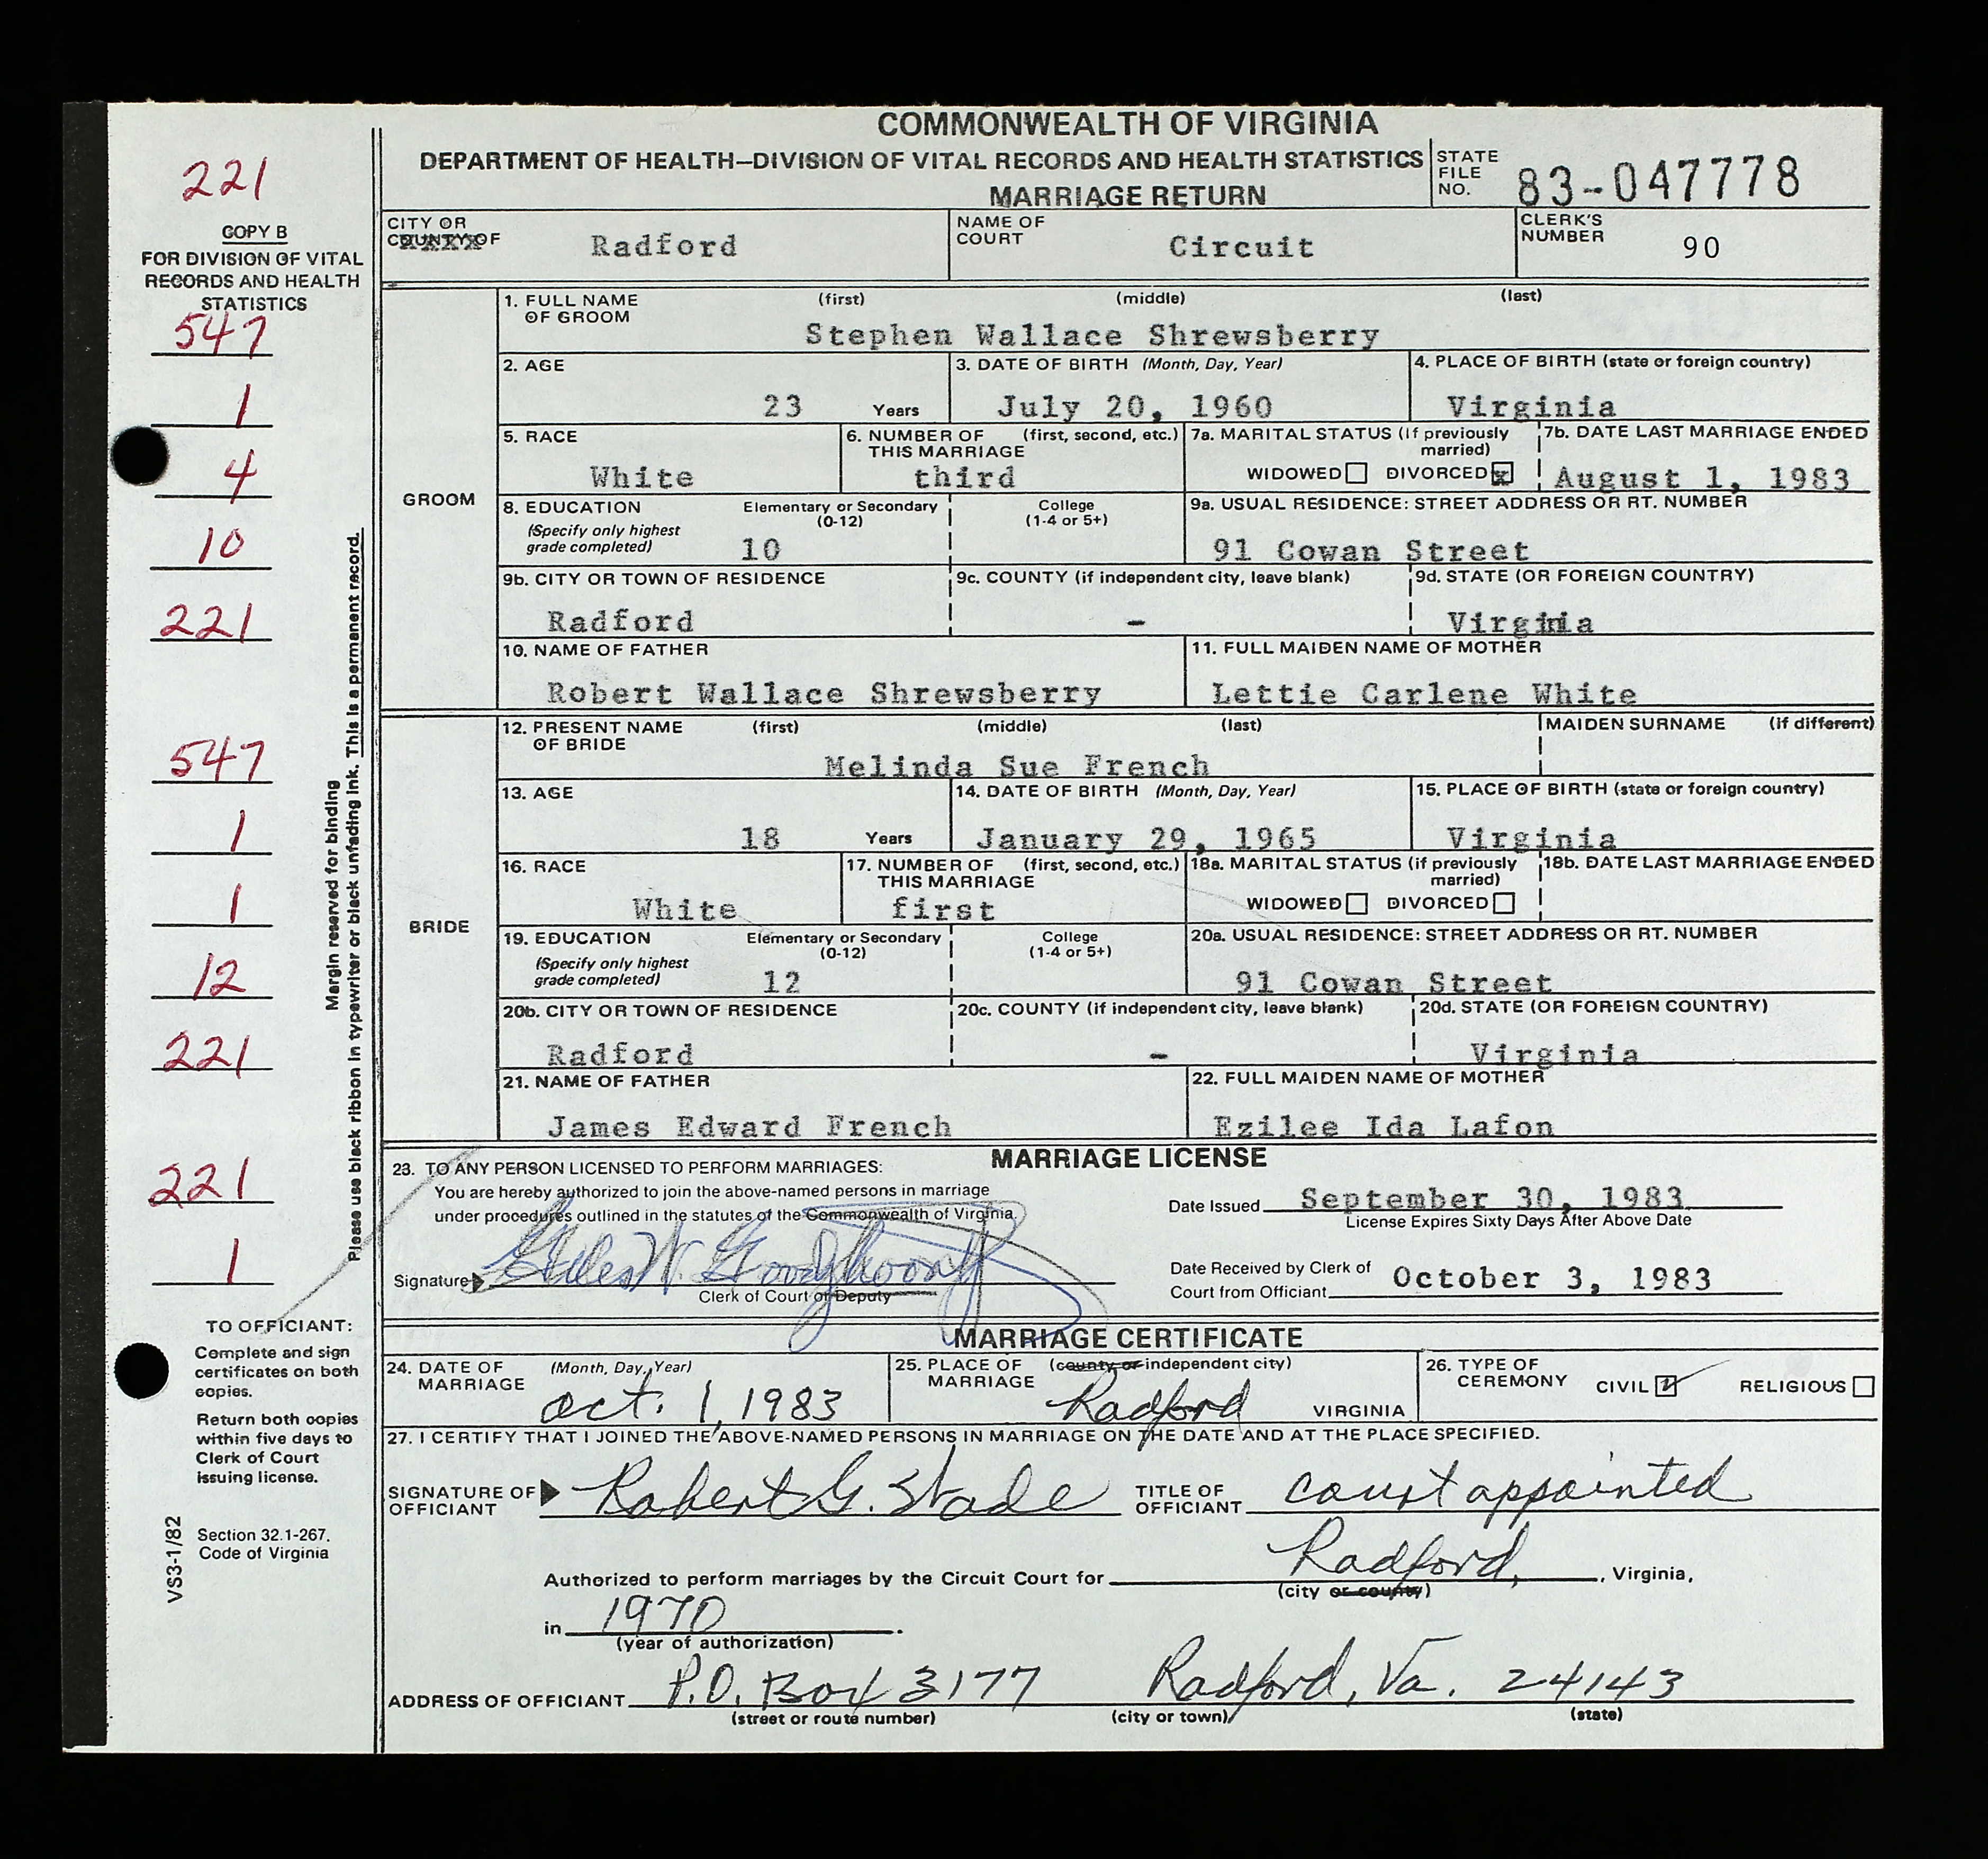 COMMONWEALTH OF VIRGINIA
DEPARTMENT OF HEALTH—DIVISION OF VITAL RECORDS AND HEALTH STATISTICS
MARRIAGE RETURN
STATE FILE NO. 83-047778
221
COPY B
FOR DIVISION OF VITAL
RECORDS AND HEALTH
STATISTICS
547
1
4
10
221
547
1
1
12
221
221
1
Margin reserved for binding
Please use black ribbon in typewriter or black unfading ink. This is a permanent record.
TO OFFICIANT:
Complete and sign
certificates on both
copies.
Return both copies
within five days to
Clerk of Court
issuing license.
Section 32.1-267,
Code of Virginia
VS3-1/82
CITY OR COUNTY OF Radford
NAME OF COURT Circuit
CLERK'S NUMBER 90
GROOM
1. FULL NAME OF GROOM (first) (middle) (last)
Stephen Wallace Shrewsberry
2. AGE 23 Years
3. DATE OF BIRTH (Month, Day, Year) July 20, 1960
4. PLACE OF BIRTH (state or foreign country) Virginia
5. RACE White
6. NUMBER OF THIS MARRIAGE (first, second, etc.) third
7a. MARITAL STATUS (if previously married) WIDOWED DIVORCED x
7b. DATE LAST MARRIAGE ENDED August 1, 1983
8. EDUCATION (Specify only highest grade completed) Elementary or Secondary (0-12) 10 College (1-4 or 5+)
9a. USUAL RESIDENCE: STREET ADDRESS OR RT. NUMBER 91 Cowan Street
9b. CITY OR TOWN OF RESIDENCE Radford
9c. COUNTY (if independent city, leave blank) -
9d. STATE (OR FOREIGN COUNTRY) Virginia
10. NAME OF FATHER Robert Wallace Shrewsberry
11. FULL MAIDEN NAME OF MOTHER Lettie Carlene White
BRIDE
12. PRESENT NAME OF BRIDE (first) (middle) (last) MAIDEN SURNAME (if different)
Melinda Sue French
13. AGE 18 Years
14. DATE OF BIRTH (Month, Day, Year) January 29, 1965
15. PLACE OF BIRTH (state or foreign country) Virginia
16. RACE White
17. NUMBER OF THIS MARRIAGE (first, second, etc.) first
18a. MARITAL STATUS (if previously married) WIDOWED DIVORCED
18b. DATE LAST MARRIAGE ENDED
19. EDUCATION (Specify only highest grade completed) Elementary or Secondary (0-12) 12 College (1-4 or 5+)
20a. USUAL RESIDENCE: STREET ADDRESS OR RT. NUMBER 91 Cowan Street
20b. CITY OR TOWN OF RESIDENCE Radford
20c. COUNTY (if independent city, leave blank) -
20d. STATE (OR FOREIGN COUNTRY) Virginia
21. NAME OF FATHER James Edward French
22. FULL MAIDEN NAME OF MOTHER Ezilee Ida Lafon
MARRIAGE LICENSE
23. TO ANY PERSON LICENSED TO PERFORM MARRIAGES:
You are hereby authorized to join the above-named persons in marriage
under procedures outlined in the statutes of the Commonwealth of Virginia.
Signature
Clerk of Court or Deputy
Date Issued September 30, 1983
License Expires Sixty Days After Above Date
Date Received by Clerk of
Court from Officiant October 3, 1983
MARRIAGE CERTIFICATE
24. DATE OF MARRIAGE (Month, Day, Year) Oct. 1, 1983
25. PLACE OF MARRIAGE (county or independent city) Radford VIRGINIA
26. TYPE OF CEREMONY CIVIL RELIGIOUS
27. I CERTIFY THAT I JOINED THE ABOVE-NAMED PERSONS IN MARRIAGE ON THE DATE AND AT THE PLACE SPECIFIED.
SIGNATURE OF OFFICIANT Robert G. Slade
TITLE OF OFFICIANT court appointed
Authorized to perform marriages by the Circuit Court for Radford, , Virginia,
(city or county)
in 1970.
(year of authorization)
ADDRESS OF OFFICIANT P.O. Box 3177 Radford, Va. 24143
(street or route number) (city or town) (state)